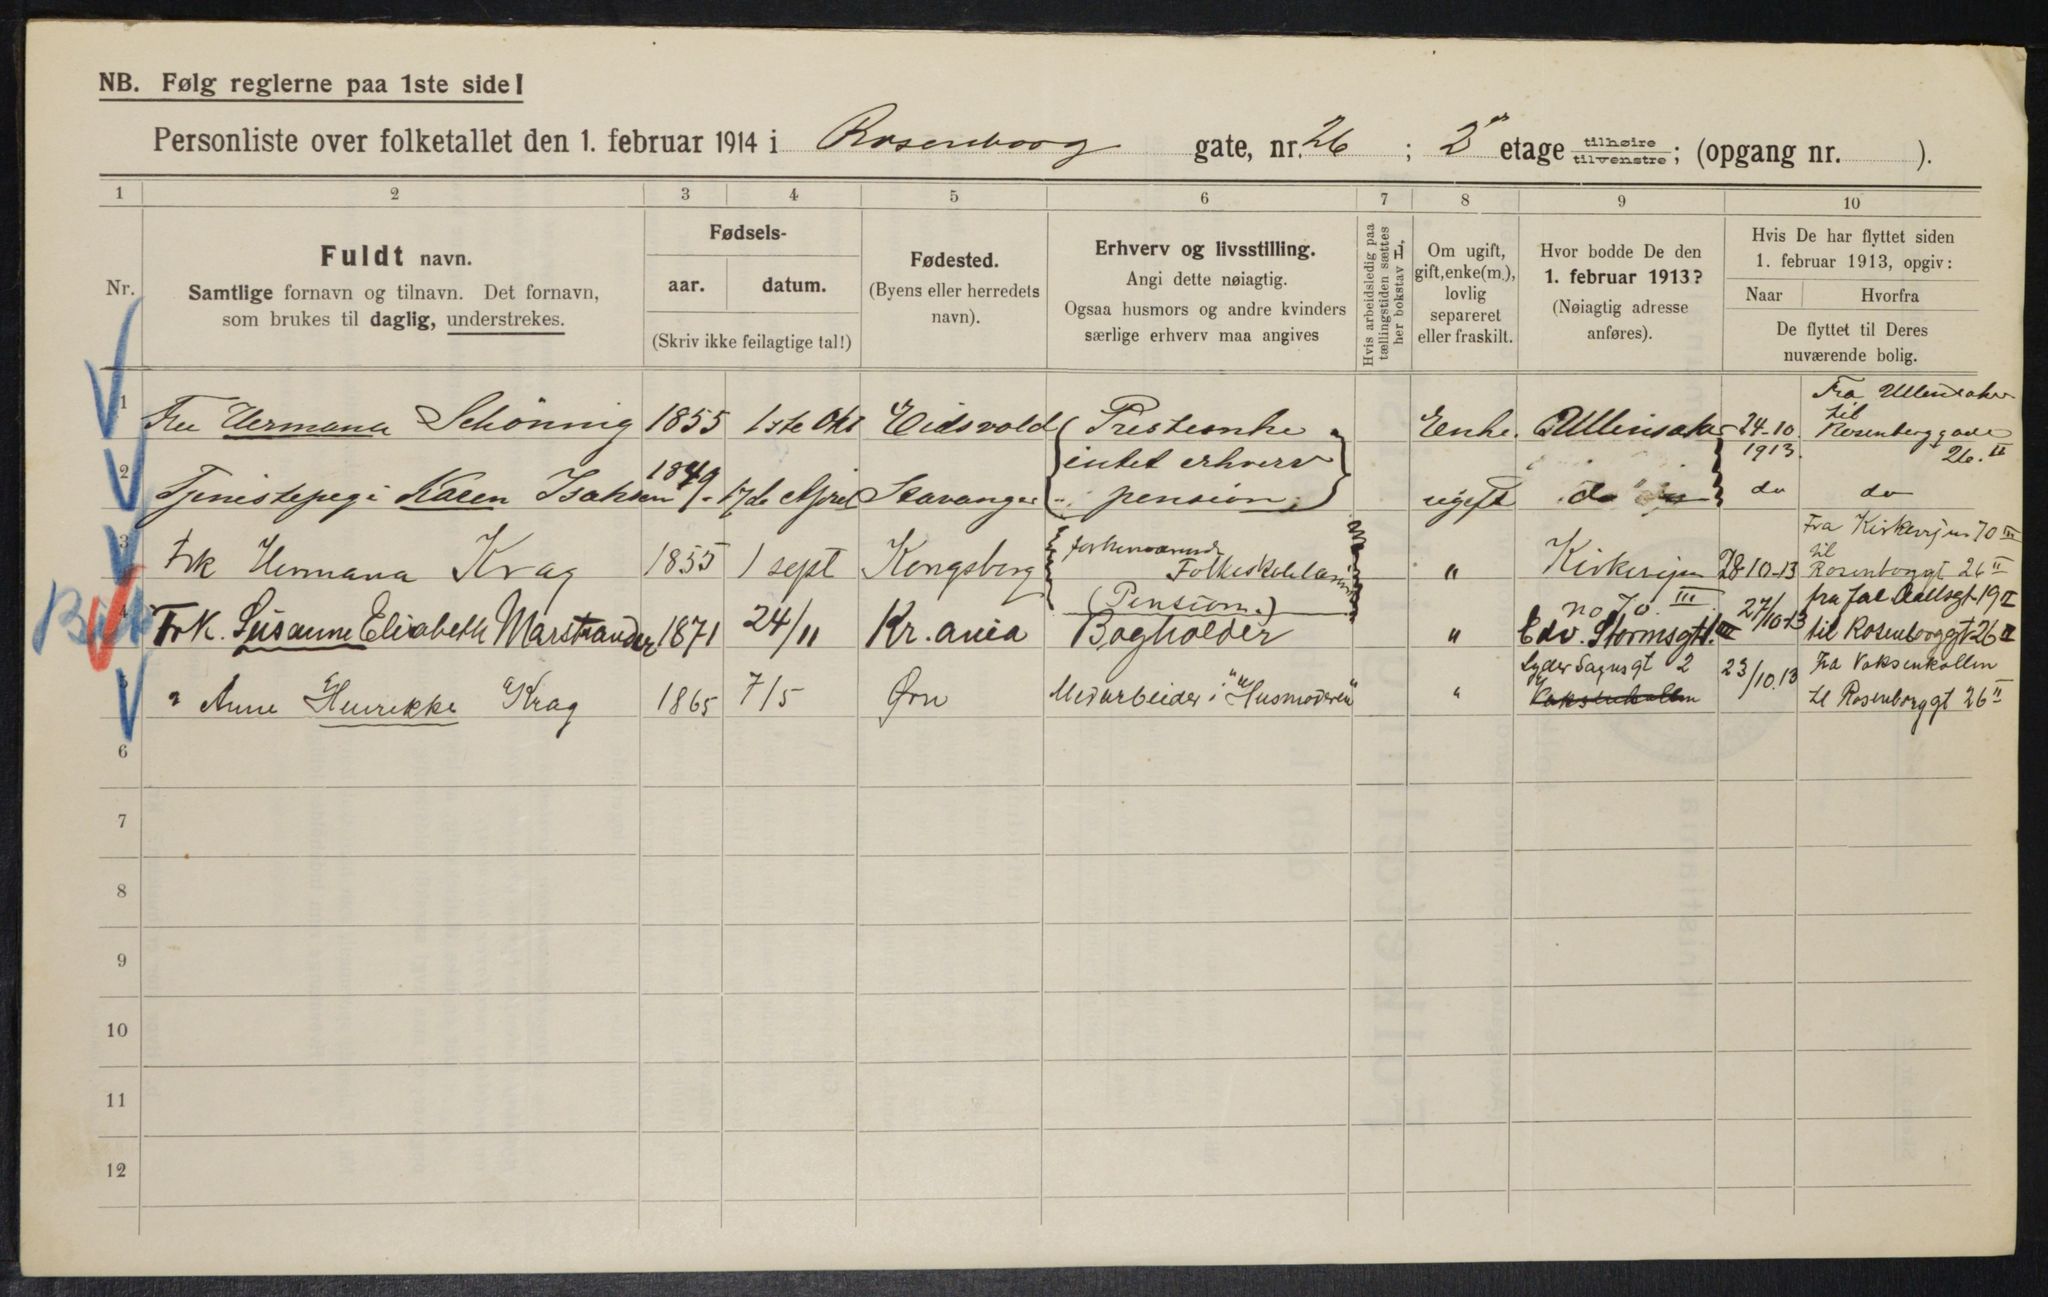 NB. Følg reglerne paa 1ste side!
Personliste over folketallet den 1. februar 1914 i Rosenborg gate, nr. 26 ; 2 etage tilhøire tilvenstre; (opgang nr. ).
1 2 3 4 5 6 7 8 9 10
Nr.
Fuldt navn.
Samtlige fornavn og tilnavn. Det fornavn,
som brukes til daglig, understrekes.
Fødsels-
aar. datum.
(Skriv ikke feilagtige tal!)
Fødested.
(Byens eller herredets
navn).
Erhverv og livsstilling.
Angi dette nøiagtig.
Ogsaa husmors og andre kvinders
særlige erhverv maa angives
Hvis arbeidsledig paa
tællingstiden sættes
her bokstav L,
Om ugift,
gift, enke(m.),
lovlig
separeret
eller fraskilt.
Hvor bodde De den
1. februar 1913?
(Nøiagtig adresse
anføres).
Hvis De har flyttet siden
1. februar 1913, opgiv:
Naar Hvorfra
De flyttet til Deres
nuværende bolig.
1 Fru Hermana Schönning 1855 1ste Okt Eidsvold Presteenke Enke. Ullensaker 24-10 1913. Fra Ullensaker
til
Rosenborggade
26.II
intet erhverv
2 Tjenestepige Karen Isaksen 1849 17de April Stavanger pension ugift do do do
3 Frk Hermana Krag 1855 1 sept Kongsberg Folkeskolelærer " Kirkeveien 28-10-13 Fra Kirkeveien 70 III
til
Rosenborggt 26 II
(Pension.) no 70 III
4 Frk. Susanne Elisabeth Marstrander 1871 24/11 Kr.ania Bogholder " Edv. Stormsgt 1. III 27/10-13 fra Jac Aallsgt 19 II
til Rosenborggt 26 II
5 " Anne Henrikke Krag 1865 7/5 Ørn Medarbeider i "Husmoderen" " Lyder Sagnsgt 2
Voksenkollen 23/10.13 fra Voksenkollen
til Rosenborggt 26 II
6
7
8
9
10
11
12